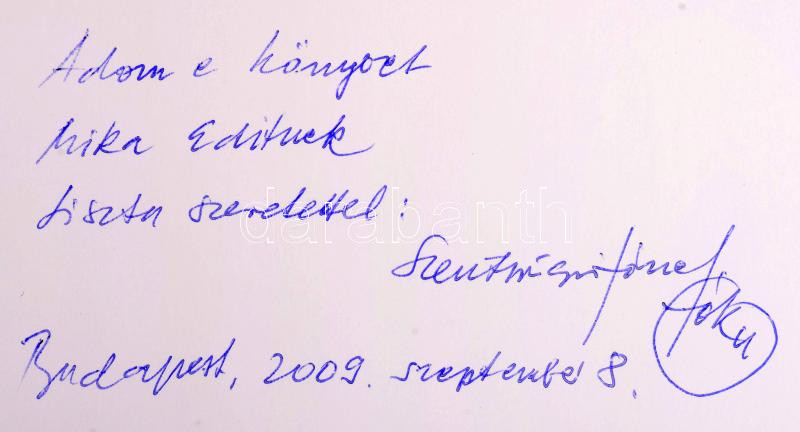 Adom e könyvet
Mika Editnek
tiszta szeretettel:
darabanth
József
Jóku
Budapest, 2009. szeptember 8.